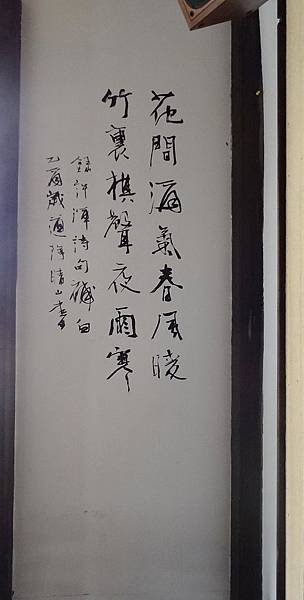 花間酒氣春風暖
竹裏棋聲夜雨寒
錄許渾詩句補白
乙酉歲陳晴山書